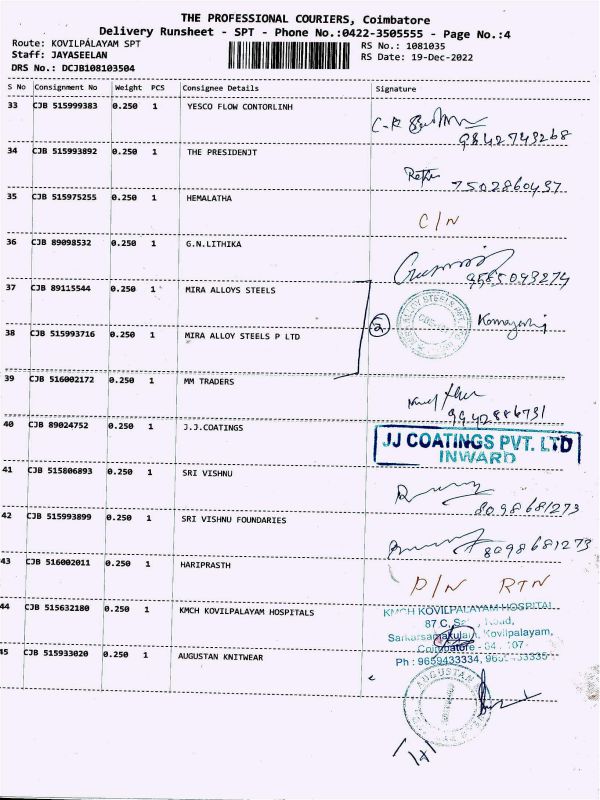 THE PROFESSIONAL COURIERS, Coimbatore
Delivery Runsheet - SPT - Phone No.:0422-3505555 - Page No.:4
Route: KOVILPALAYAM SPT
RS No.: 1081035
Staff: JAYASEELAN
RS Date: 19-Dec-2022
DRS No.: DCJB108103504
S No Consignment No Weight PCS Consignee Details Signature
33 CJB 515999383 0.250 1 YESCO FLOW CONTORLINH
C-R
9842743268
34 CJB 515993892 0.250 1 THE PRESIDENJT
7502860437
35 CJB 515975255 0.250 1 HEMALATHA
C/N
36 CJB 89098532 0.250 1 G.N.LITHIKA
9585093274
37 CJB 89115544 0.250 1 MIRA ALLOYS STEELS
2
38 CJB 515993716 0.250 1 MIRA ALLOY STEELS P LTD
39 CJB 516002172 0.250 1 MM TRADERS
9942886731
40 CJB 89024752 0.250 1 J.J.COATINGS
JJ COATINGS PVT. LTD
INWARD
41 CJB 515806893 0.250 1 SRI VISHNU
8098681273
42 CJB 515993899 0.250 1 SRI VISHNU FOUNDARIES
8098681273
43 CJB 516002011 0.250 1 HARIPRASTH
D/N RTN
44 CJB 515632180 0.250 1 KMCH KOVILPALAYAM HOSPITALS
KMCH KOVILPALAYAM HOSPITAL
87 C, Road,
Sarkarsamakulam, Kovilpalayam,
Coimbatore - 107
Ph : 9659433334,
45 CJB 515933020 0.250 1 AUGUSTAN KNITWEAR
AUGUSTAN